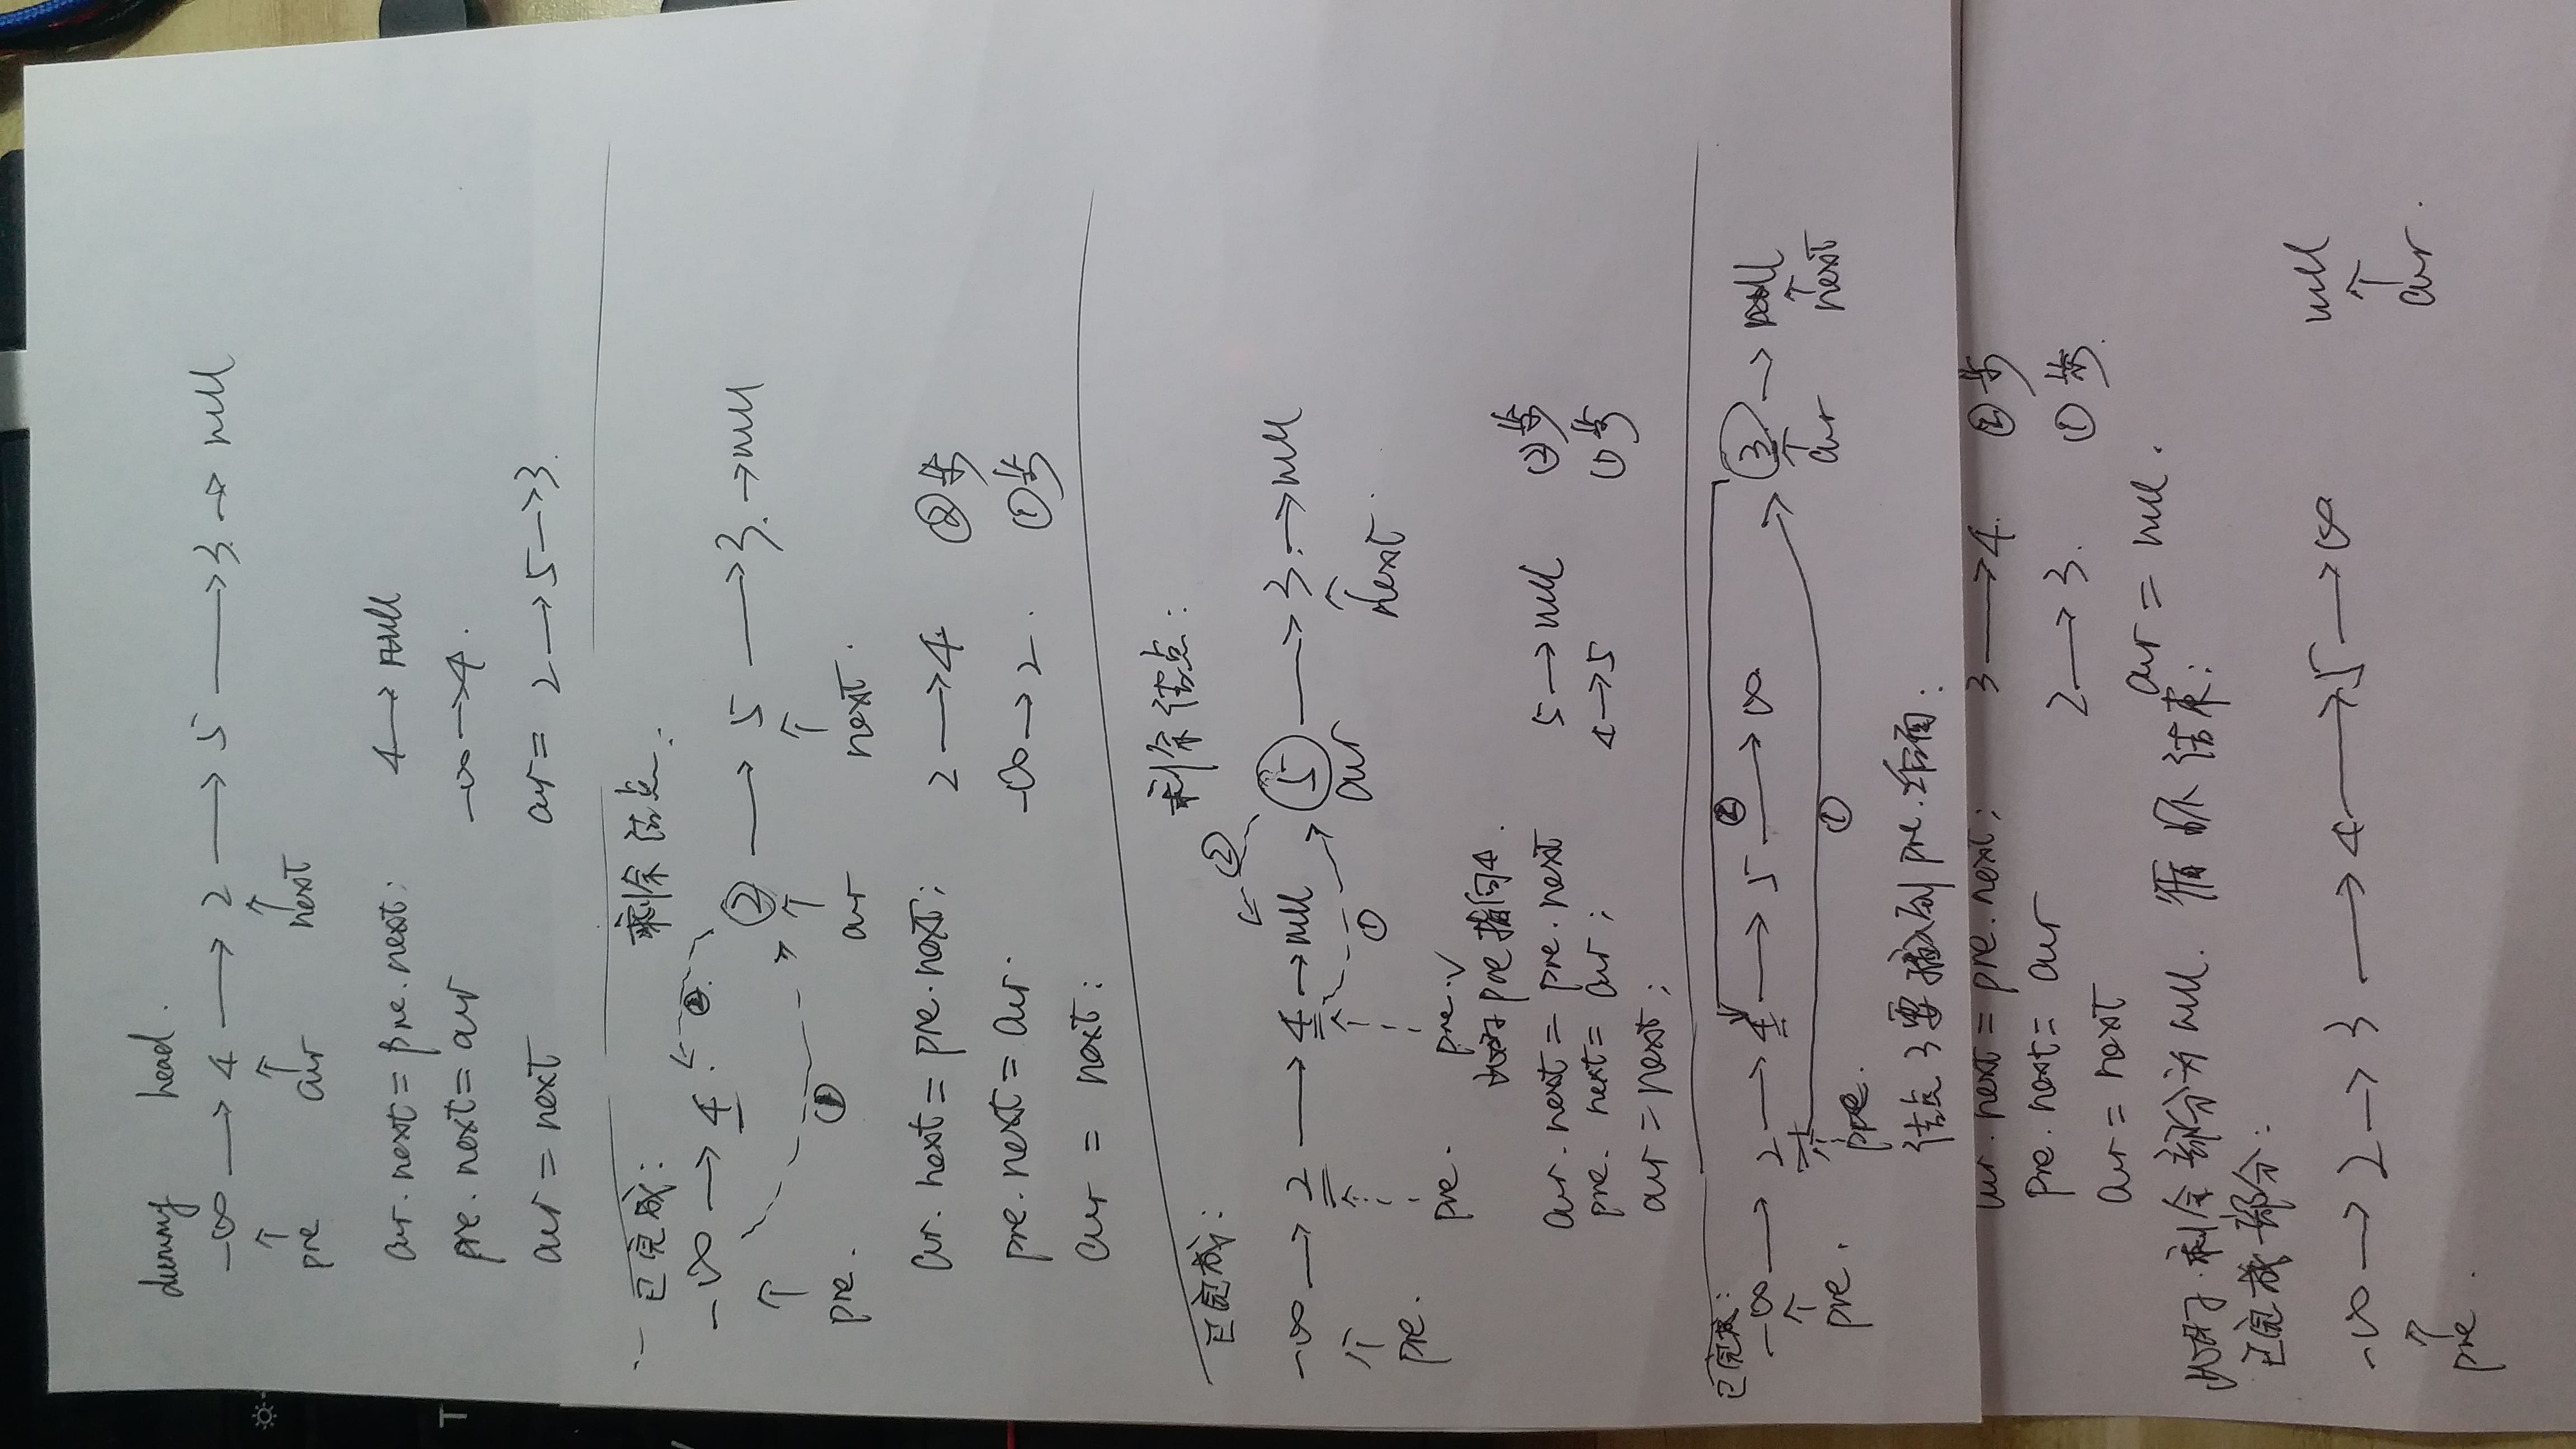 dummy head.
-∞ → 4 → 2 → 5 → 3. → null
↑ ↑ ↑
pre cur next
cur.next = pre.next; 4 → null
pre.next = cur -∞ → 4.
cur = next cur = 2 → 5 → 3.
已完成: 剩余结点:
-∞ → 4. ②
② → 5 → 3. → null
↑ ↑ ↑
① 
pre. cur next.
cur.next = pre.next; 2 → 4 ②步
pre.next = cur. -∞ → 2. ①步
cur = next;
剩余结点:
已完成:
②
-∞ → 2 → 4 → null ⑤ → 3. → null
① cur
↑ ↑ ↑ ↑
pre. next.
pre. pre.√
此时pre指向4.
cur.next = pre.next 5 → null ②步
pre.next = cur; 4 → 5 ①步
cur = next;
已完成: ②
-∞ → 2 → 4 → 5 → ∞ ③ → null
↑ ↑ ↑ ↑
pre. ① cur next
pre.
结点3要插入到pre.后面:
cur.next = pre.next; 3 → 4. ②步
pre.next = cur 2 → 3. ①步
cur = next cur = null.
此时.剩余部分为null. 循环结束;
已完成部分:
-∞ → 2 → 3 → 4 → 5 → ∞ null
↑ ↑
pre. cur.